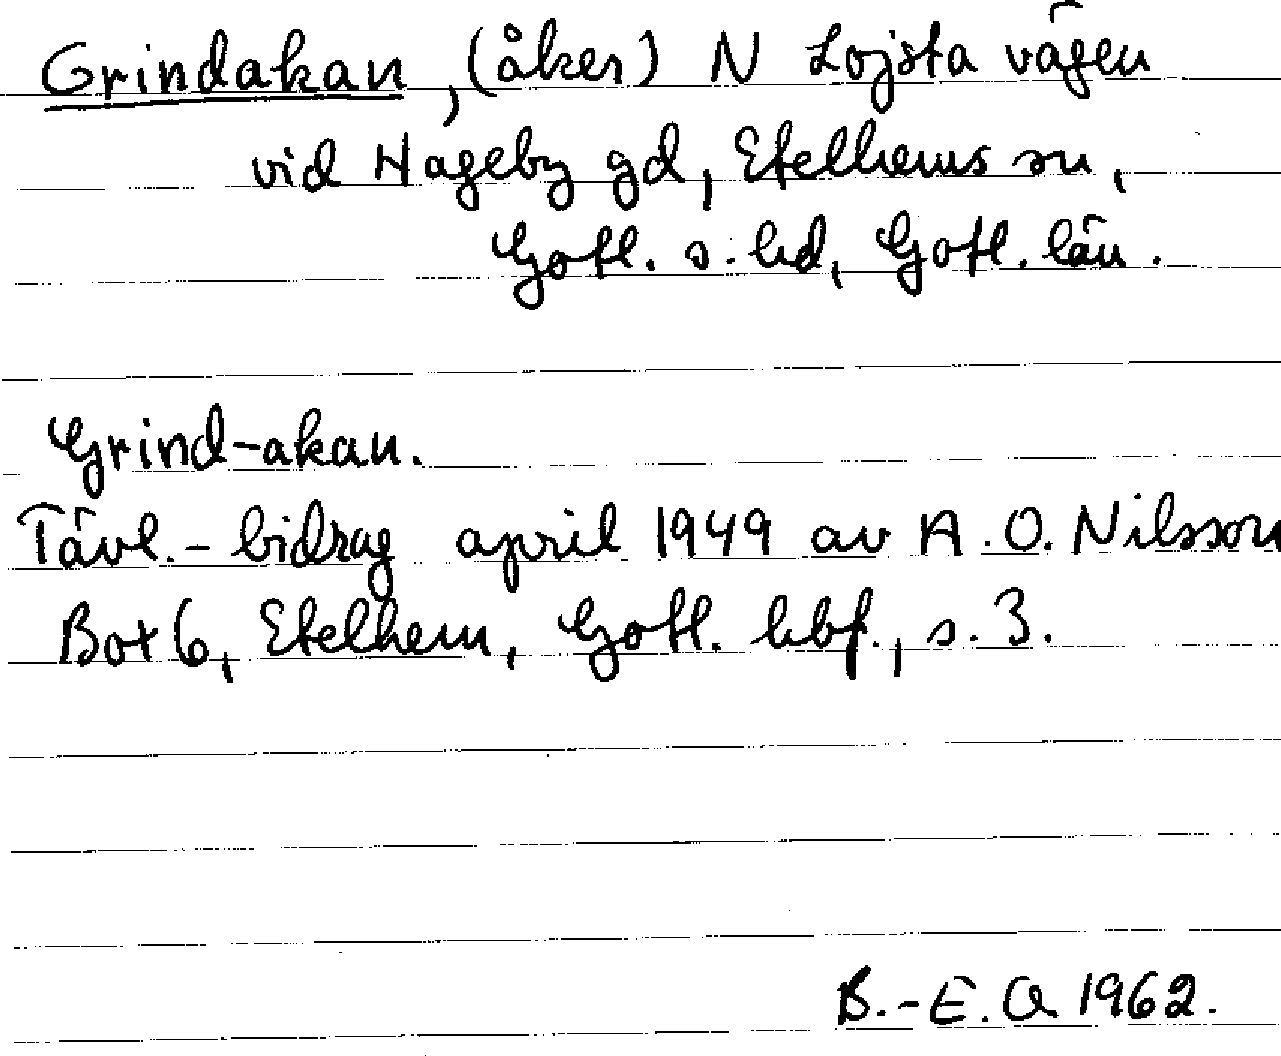 Grindakan, (åker) N Lojsta vägen
vid Hageby gd, Etelhems sn,
Gotl. s. hd, Gotl. län.
Grind-akan.
Tävl.- bidrag april 1949 av A. O. Nilsson
Box 6, Etelhem, Gotl. hbf., s. 3.
B.-E. O 1962.